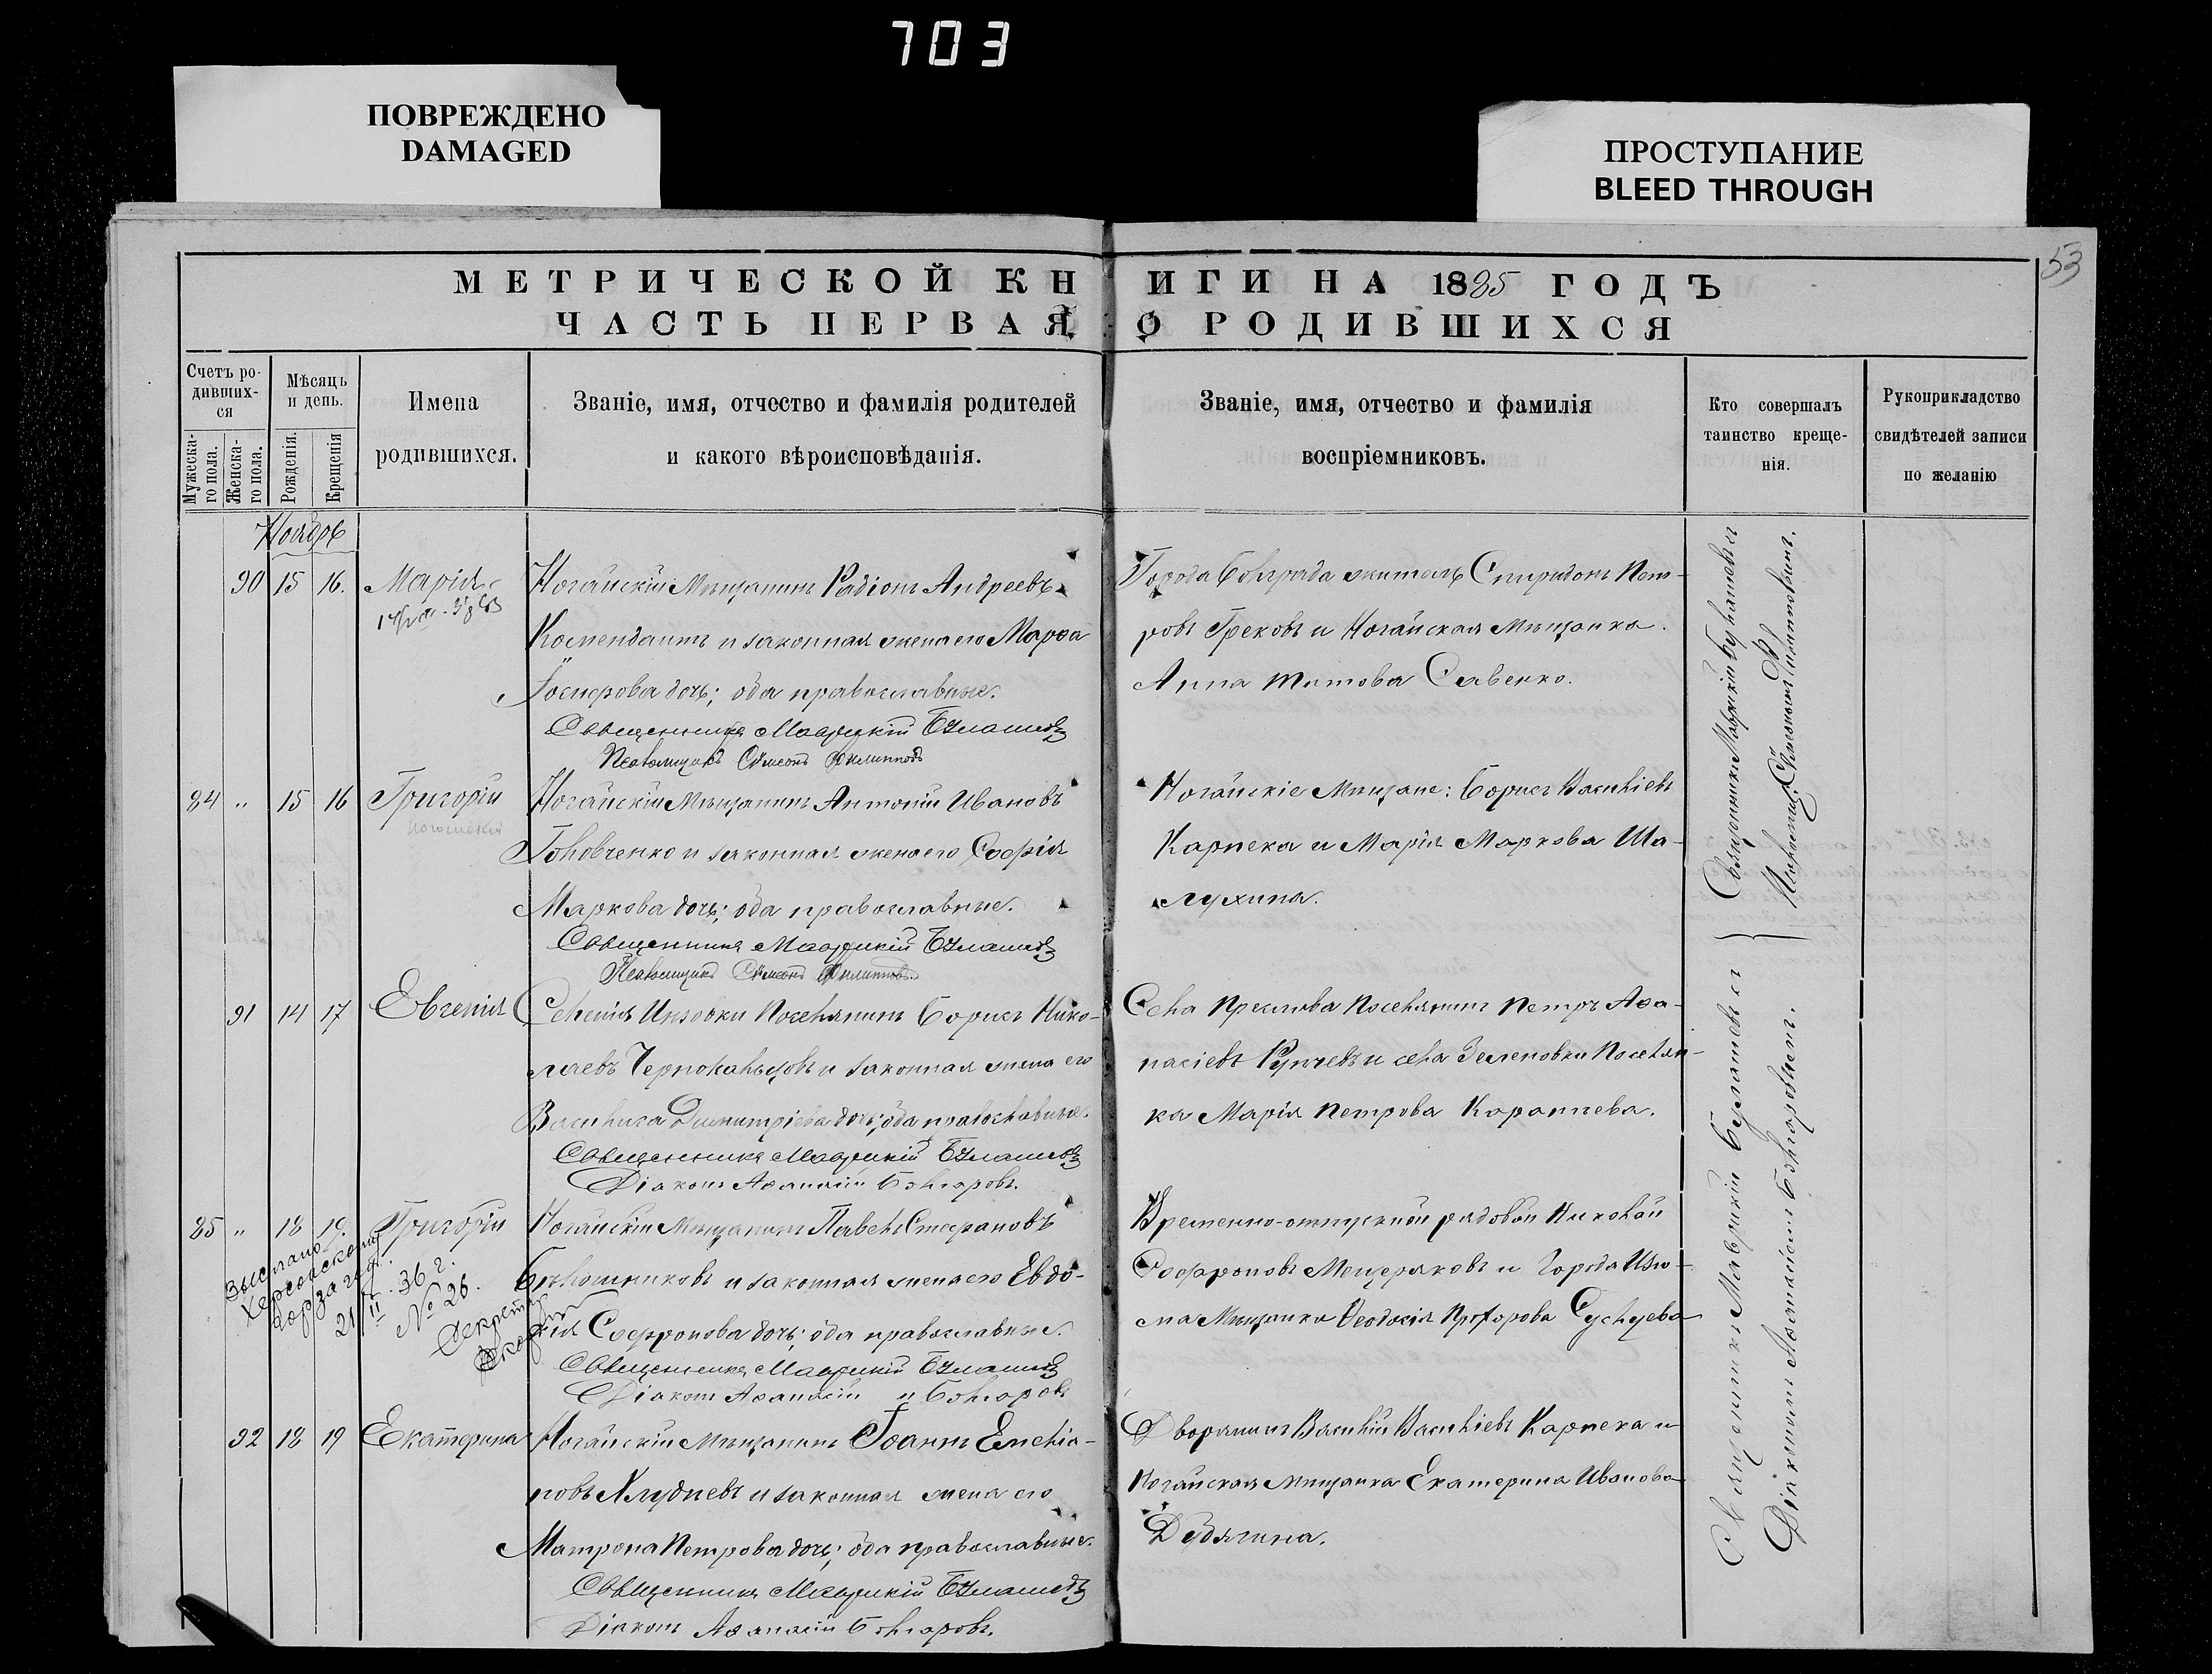 703
ПОВРЕЖДЕНО
DAMAGED
ПРОСТУПАНИЕ
BLEED THROUGH
53
МЕТРИЧЕСКОЙ КНИГИ НА 1885 ГОДЪ
ЧАСТЬ ПЕРВАЯ, О РОДИВШИХСЯ
Счетъ ро-
дивших-
ся
Мужеска-
го пола.
Женска-
го пола.
Мѣсяцъ
и день.
Рожденія.
Крещенія
Имена
родившихся.
Званіе, имя, отчество и фамилія родителей
и какого вѣроисповѣданія.
Званіе, имя, отчество и фамилія
воспріемниковъ.
Кто совершалъ
таинство креще-
нія.
Рукоприкладство
свидѣтелей записи
по желанію
Ноябрь
90 15 16. Марія
Ногайскій Мѣщанинъ Радіонъ Андреевъ
Комендантъ и законная жена его Марѳа
Іосифова дочь; оба православные.
Священникъ Маврикій Булашевъ
Псаломщикъ Сѵмеонъ Филипповъ
Города Болграда житель Спиридонъ Пет-
ровъ Грековъ и Ногайская Мѣщанка
Анна Титова Савенко.
84 " 15 16 Григорій
Ногайскій Мѣщанинъ Антоній Ивановъ
Головченко и законная жена его Софія
Маркова дочь; оба православные.
Священникъ Маврикій Булашевъ
Псаломщикъ Сѵмеонъ Филипповъ.
Ногайскіе Мѣщане: Борисъ Васильевъ
Карпека и Марія Маркова Ша-
лухина.
91 14 17 Евгенія
Селенія Инзовки Поселянинъ Борисъ Нико-
лаевъ Чернокальцовъ и законная жена его
Василиса Димитріева дочь; оба православные.
Священникъ Маврикій Булашевъ
Діаконъ Аѳанасій Болгаровъ.
Села Преслава Поселянинъ Петръ Аѳа-
насіевъ Рупчевъ и села Зеленовки Поселян-
ка Марія Петрова Карапчева.
85 " 18 19. Григорій
Выслано
Херсонскому
гор/загс.
21/II 36 г.
№ 26.
Секретарь
Ногайскій Мѣщанинъ Павелъ Стефановъ
Бѣлошниковъ и законная жена его Евдо-
кія Софронова дочь; оба православные.
Священникъ Маврикій Булашевъ
Діаконъ Аѳанасій Болгаровъ
Временно-отпускной рядовой Николай
Софроновъ Мещеряковъ и Города Изю-
ма Мѣщанка Ѳеодосія Прохорова
92 18 19 Екатерина
Ногайскій Мѣщанинъ Іоаннъ Емелья-
новъ Хлудневъ и законная жена его
Матрона Петрова дочь; оба православные.
Священникъ Маврикій Булашевъ
Діаконъ Аѳанасій Болгаровъ.
Дворянинъ Василій Васильевъ Карпека и
Ногайская Мѣщанка Екатерина Иванова
Дебягина.
Священникъ Маврикій Булашевъ съ
Діакономъ Аѳанасіемъ Болгаровымъ.